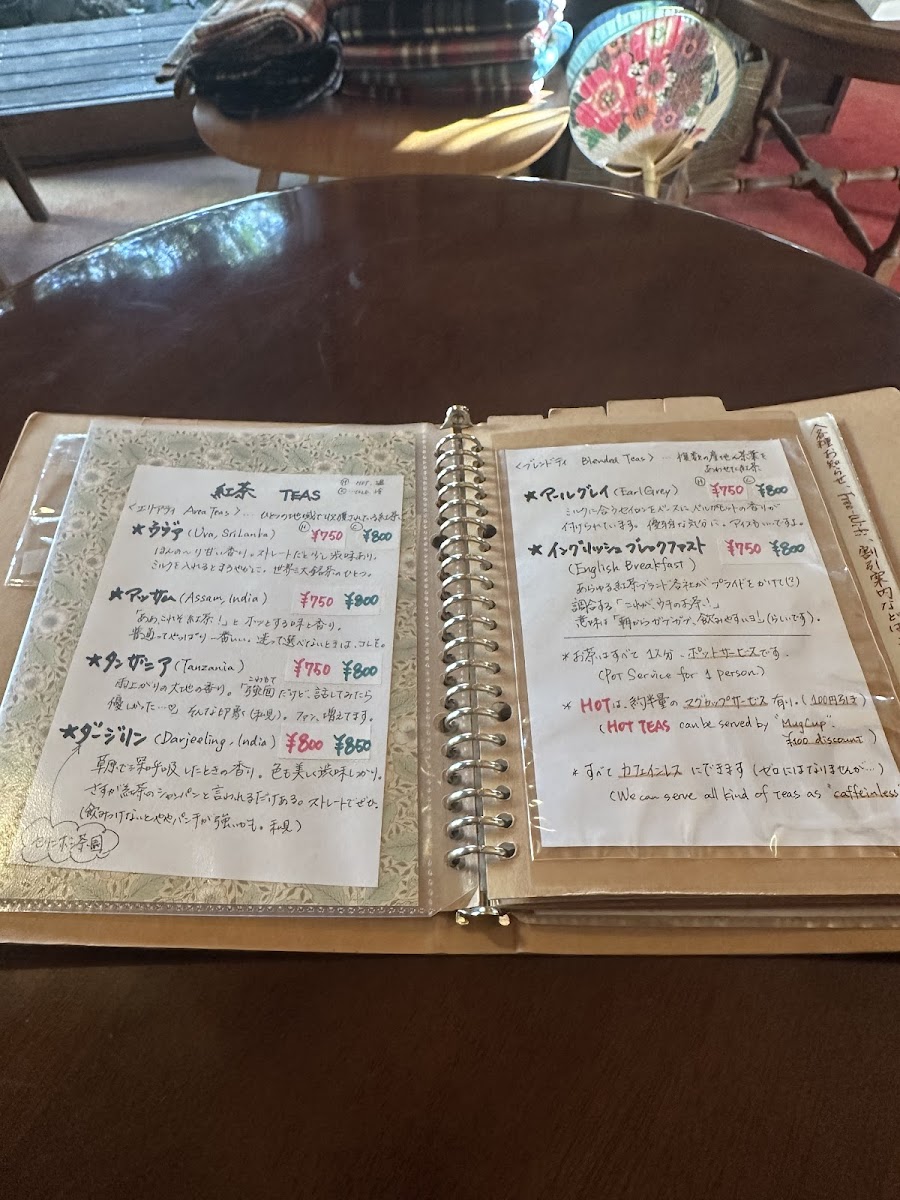 紅茶 TEAS
Ⓗ HOT. 温
Ⓒ COLD. 冷
〈エリアティ Area Teas〉… ひとつの地域で収穫されている紅茶
Ⓗ Ⓒ
★ウヴァ (Uva, SriLanka) ¥750 ¥800
ほんの〜り甘い香り。ストレートだと少し渋味あり。
ミルクを入れるとまろやかに。世界三大銘茶のひとつ。
★アッサム (Assam, India) ¥750 ¥800
「ああ、これぞ紅茶!」とホッとする味と香り。
普通ってやっぱり一番いい。迷って選べないときは、コレを。
★タンザニア (Tanzania) ¥750 ¥800
雨上がりの大地の香り。「強面だけど、話してみたら
こわもて
優しかった…」そんな印象(私見)。ファン、増えてます。
★ダージリン (Darjeeling, India) ¥800 ¥850
草原で深呼吸したときの香り。色も美しく渋味しっかり。
さすが紅茶のシャンパンと言われるだけある。ストレートでぜひ。
(飲みつけないとややパンチが強いかも。私見)
茶園
〈ブレンドティ Blended Teas〉… 複数の産地の茶葉を
あわせた紅茶
Ⓗ Ⓒ
★アールグレイ (Earl Grey) ¥750 ¥800
ミルクに合うセイロンをベースに、ベルガモットの香りが
付けられています。優雅な気分に。アイスもいいですよ。
★イングリッシュブレックファスト ¥750 ¥800
(English Breakfast)
あらゆる紅茶ブランド会社が、プライドをかけて(?)
調合する「これが、ウチのお茶!」
意味は「朝からガブガブ、飲みやすい日」(らしいです)。
*お茶はすべて 1人分、ポットサービスです。
(Pot Service for 1 person.)
* HOTは、約半量の マグカップサービス 有り。(100円引き)
(HOT TEAS can be served by "Mug Cup".
¥100 discount)
*すべて カフェインレス にできます (ゼロにはなりませんが…)
(We can serve all kind of Teas as "caffeinless"
各種お知らせ 割引案内などは